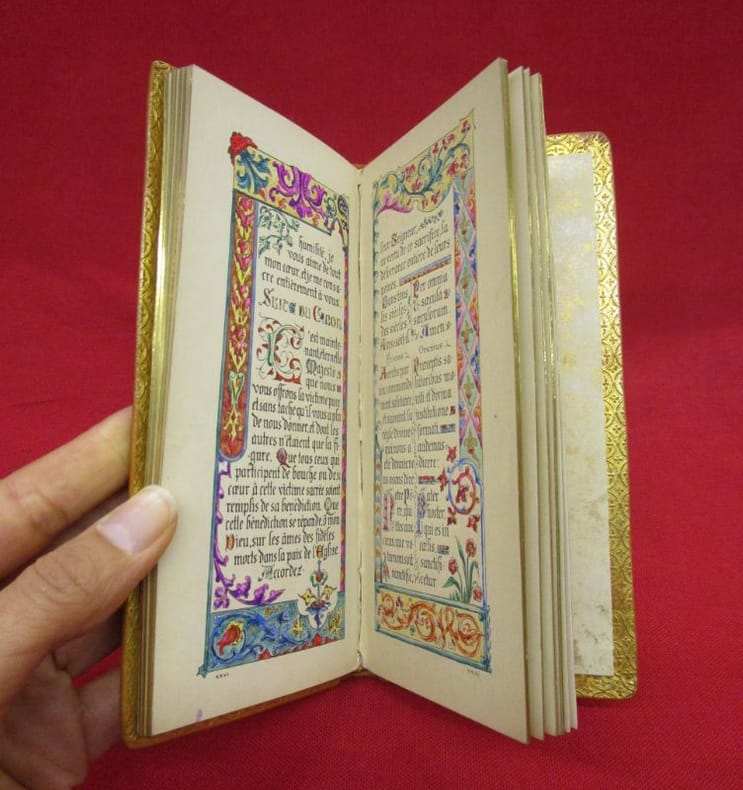 humilité, je
vous aime de tout
mon cœur, et je me consa
cre entièrement à vous
SUITE DU CANON
C'est mainte-
nant, éternelle
Majesté
que nous
vous offrons la victime pure
et sans tache qu'il vous a plu
de nous donner, et dont les
autres n'étaient que la fi-
gure. Que tous ceux qui
participent de bouche ou de
cœur à cette victime sacrée soient
remplis de sa bénédiction. Que
cette bénédiction se répande, ô mon
Dieu, sur les âmes des fidèles
morts dans la paix de l'Église
Accordez
XXVI
leur Seigneur, la
en vertu de ce sacrifice, la
délivrance entière de leurs
peines
Dans tous
les siècles
des siècles
Ainsi soit il
Prions
Avertis par
un commande
ment salutaire,
et suivant la
règle divine
qui nous a
été donnée
nous osons dire
Notre Pè
re, qui
êtes aux
cieux, que vo
tre nom soit
sanctifié,
Per omnia
sæcula
sæculorum.
Amen
Oremus
Præceptis sa
lutaribus mo
niti et divina
institutione
formati
audemus
dicere:
Pater
noster,
qui es in
cœlis
sanctifi
cetur